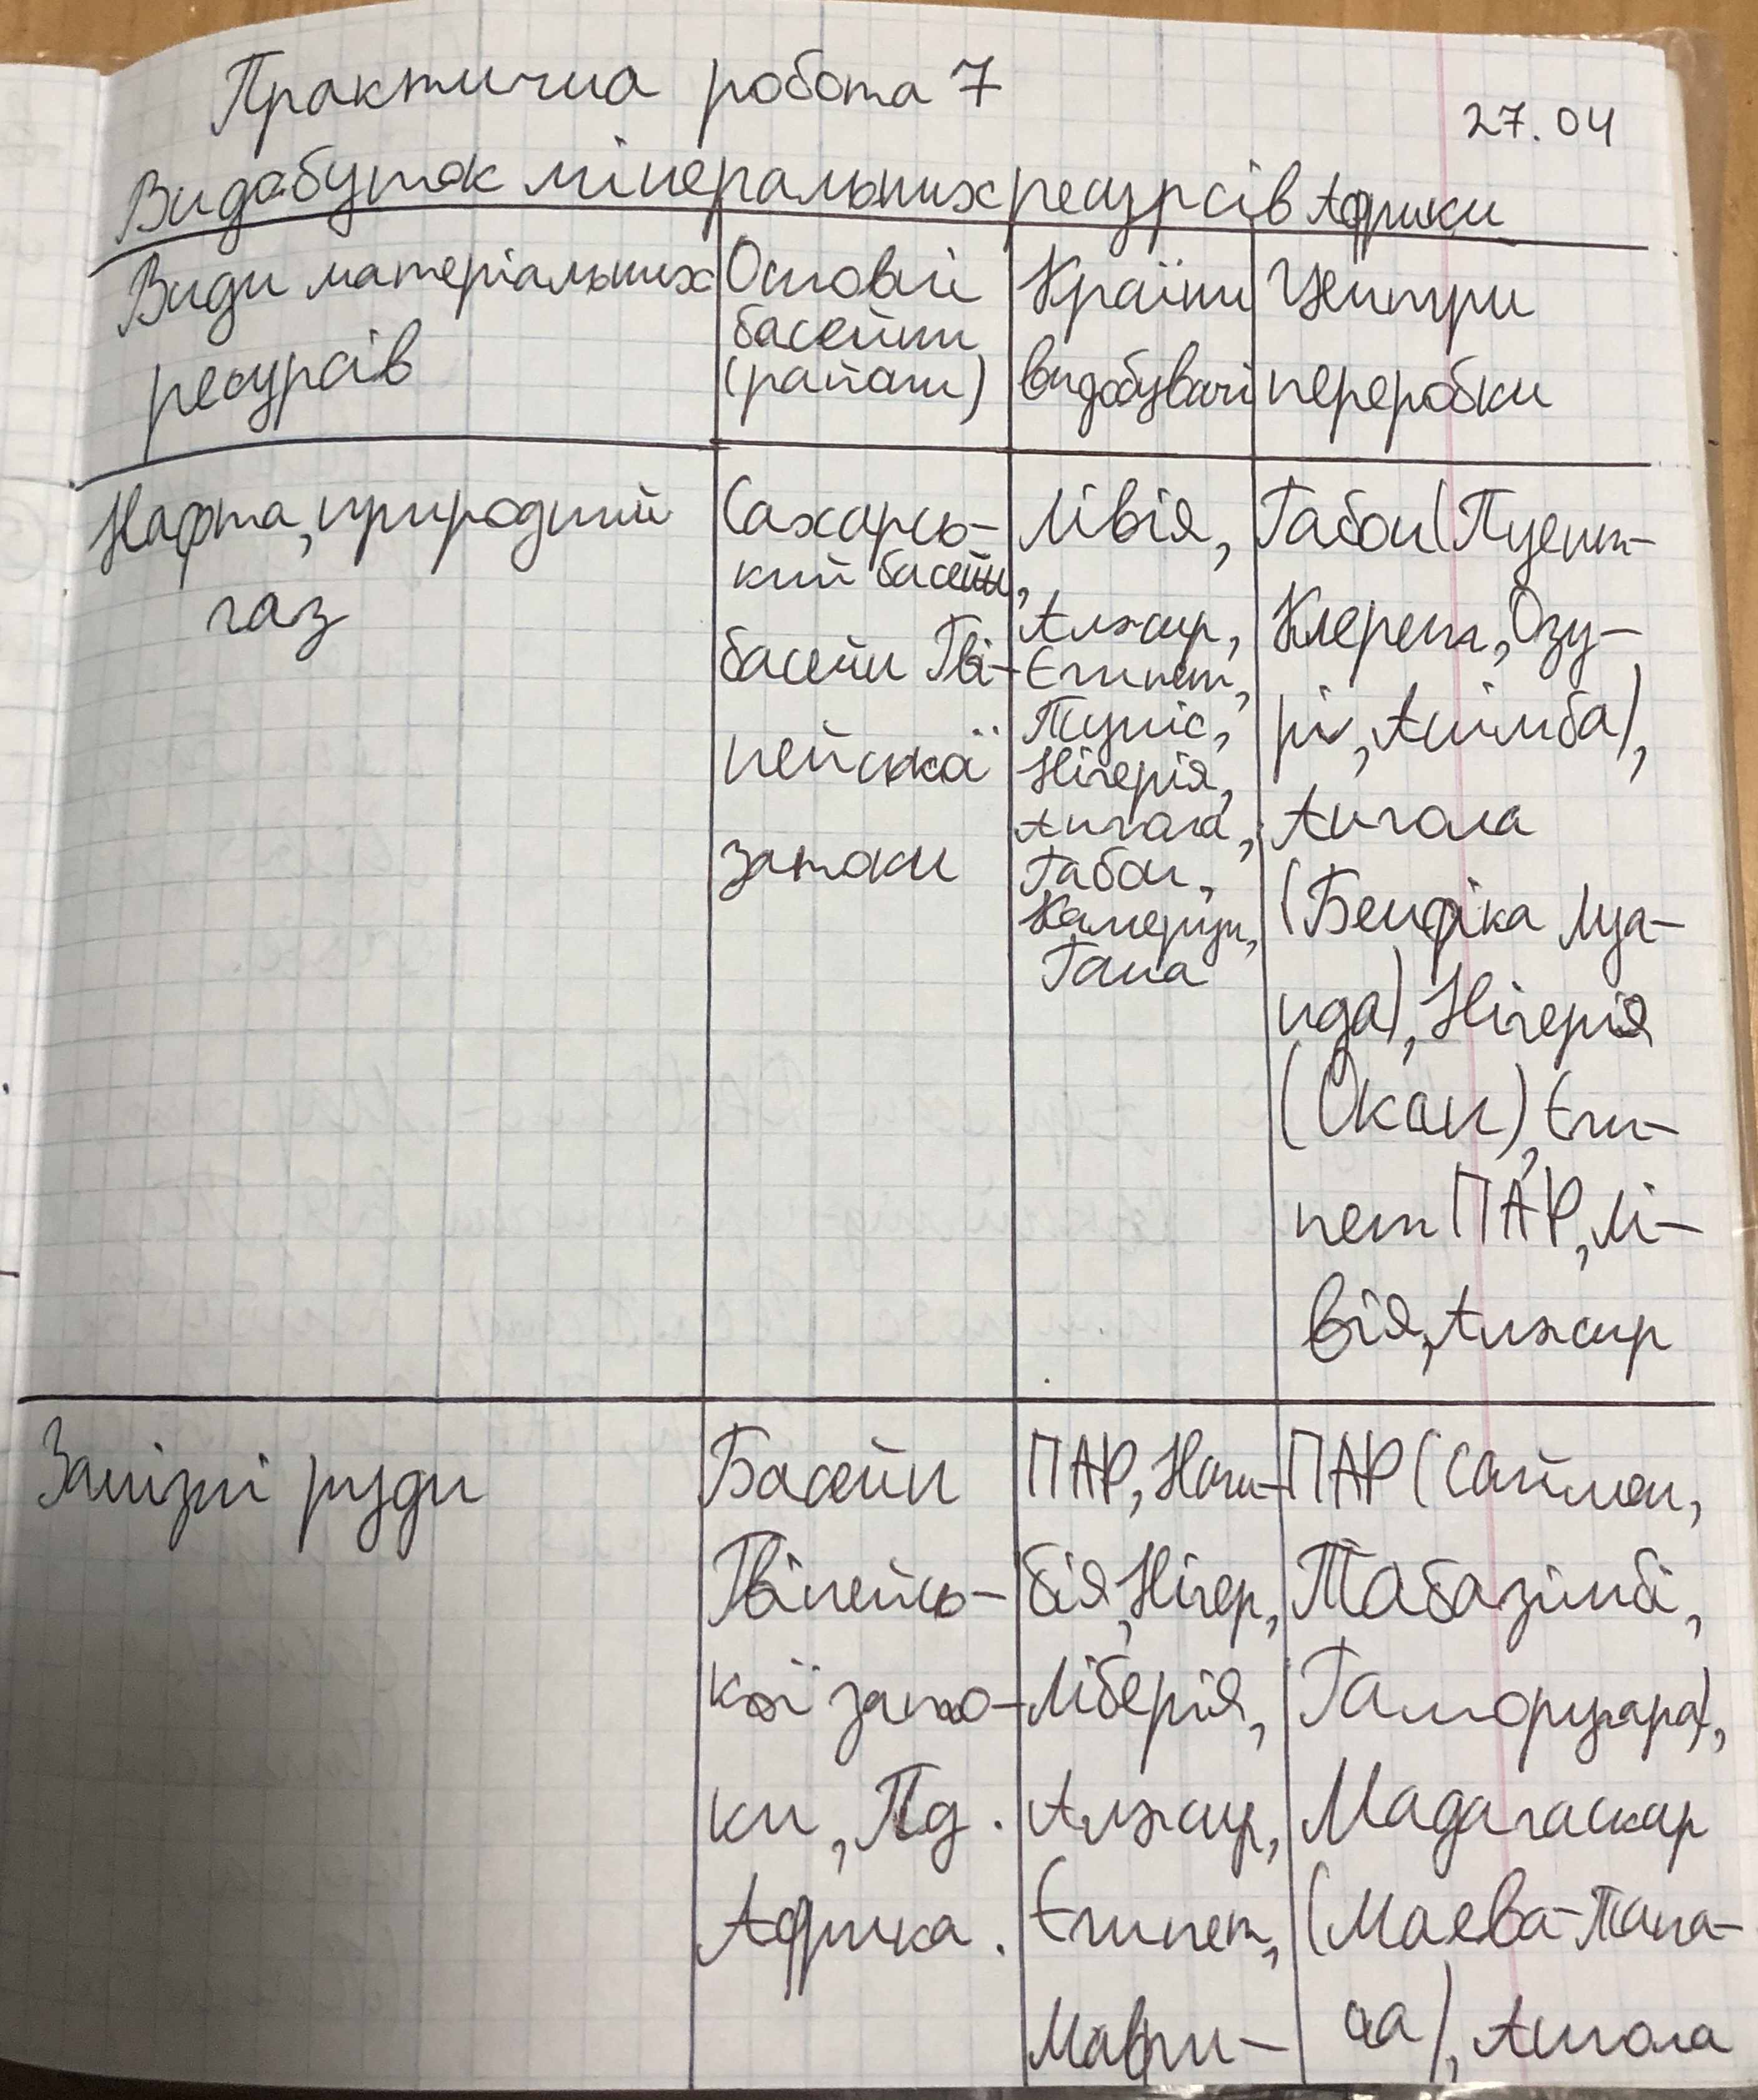 Практична робота 7
27.04
Видобуток мінеральних ресурсів Африки
Види матеріальних
ресурсів
Основні
басейни
(райони)
Країни
видобувачі
Центри
переробки
Нафта, природний
газ
Сахарсь-
кий басейн,
басейн Гві-
нейської
затоки
Лівія,
Алжир,
Єгипет,
Туніс,
Нігерія,
Ангола,
Габон,
Камерун,
Гана
Габон (Пуент-
Клерет, Озу-
рі, Ангімба),
Ангола
(Бенфіка Луа-
нда), Нігерія
(Окан), Єги-
пет ПАР, Лі-
вія, Алжир
Залізні руди
Басейн
Гвінейсь-
кої зато-
ки, Пд.
Африка.
ПАР, Намі-
бія, Нігер,
Ліберія,
Алжир,
Єгипет,
Маври-
ПАР (Саймон,
Табазімбі,
Гаморугара),
Мадагаскар
(Маева-Тана-
на), Ангола